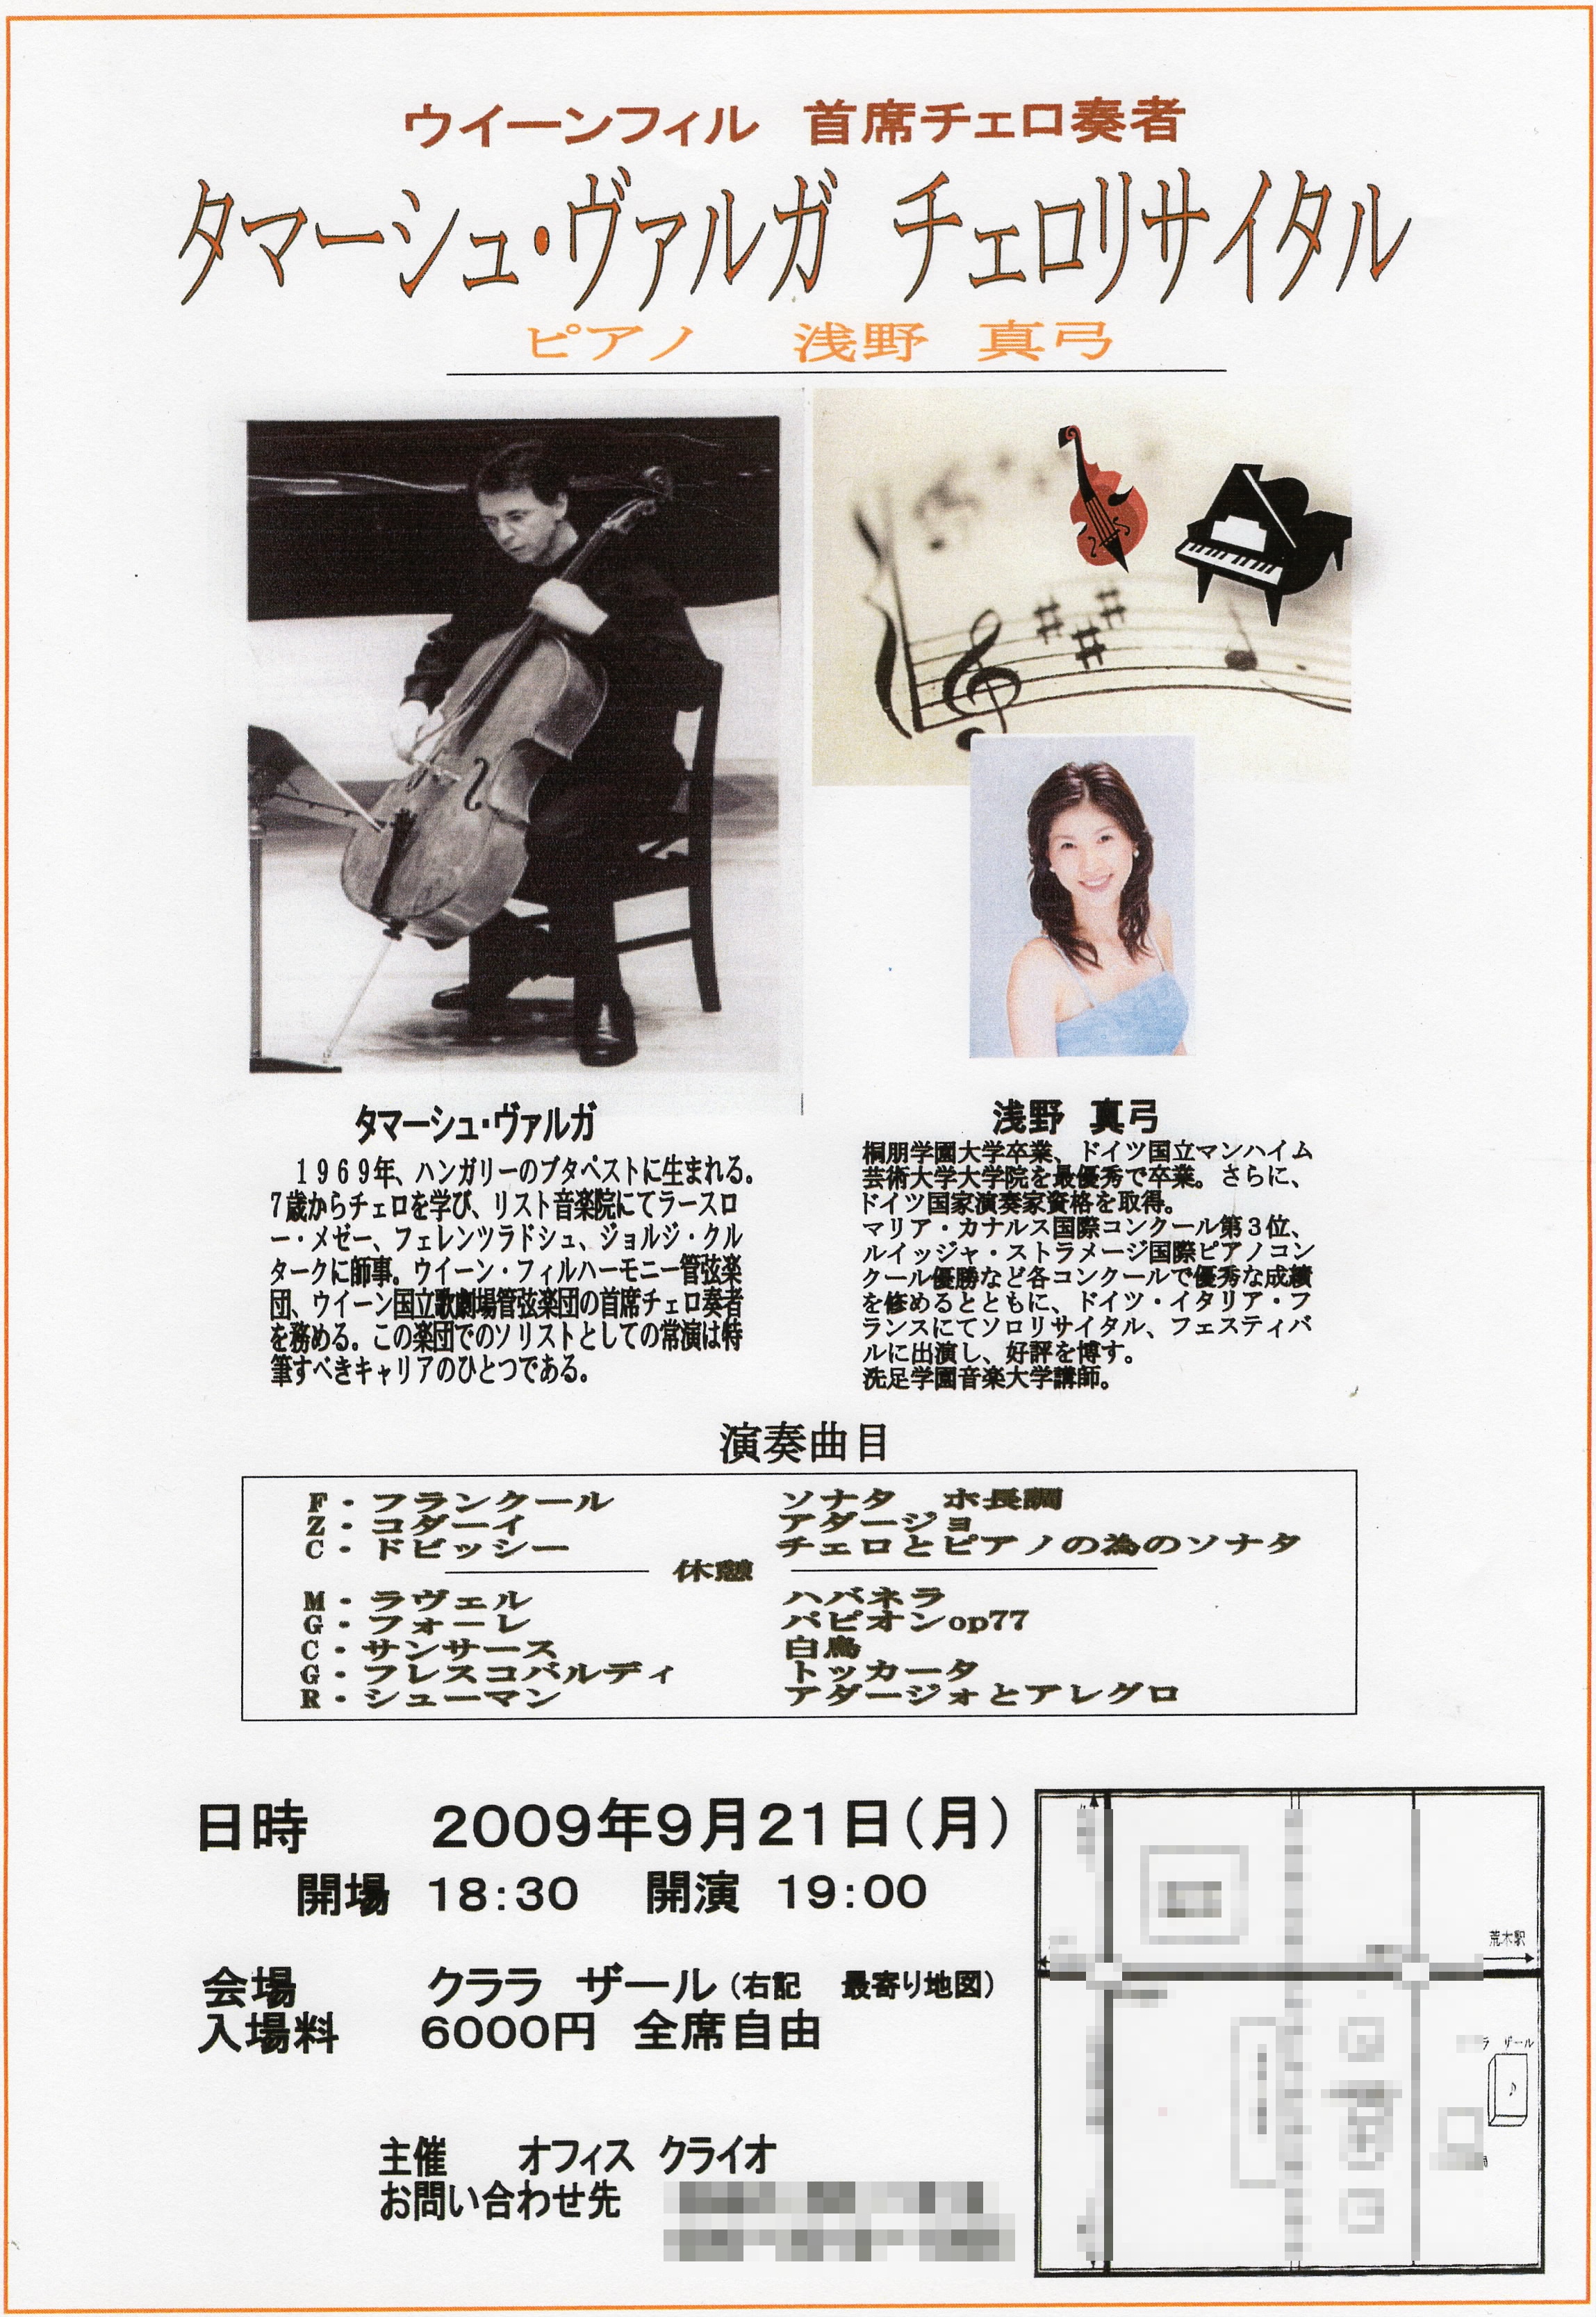 ウイーンフィル 首席チェロ奏者
タマーシュ・ヴァルガ チェロリサイタル
ピアノ 浅野 真弓
タマーシュ・ヴァルガ
1969年、ハンガリーのブタペストに生まれる。
7歳からチェロを学び、リスト音楽院にてラースロ
ー・メゼー、フェレンツラドシュ、ジョルジ・クル
タークに師事。ウイーン・フィルハーモニー管弦楽
団、ウイーン国立歌劇場管弦楽団の首席チェロ奏者
を務める。この楽団でのソリストとしての常演は特
筆すべきキャリアのひとつである。
浅野 真弓
桐朋学園大学卒業、ドイツ国立マンハイム
芸術大学大学院を最優秀で卒業。さらに、
ドイツ国家演奏家資格を取得。
マリア・カナルス国際コンクール第3位、
ルイッジャ・ストラメージ国際ピアノコン
クール優勝など各コンクールで優秀な成績
を修めるとともに、ドイツ・イタリア・フ
ランスにてソロリサイタル、フェスティバ
ルに出演し、好評を博す。
洗足学園音楽大学講師。
演奏曲目
F・フランクール ソナタ ホ長調
Z・コダーイ アダージョ
C・ドビッシー チェロとピアノの為のソナタ
休憩
M・ラヴェル ハバネラ
G・フォーレ パピオンop77
C・サンサース 白鳥
G・フレスコバルディ トッカータ
R・シューマン アダージォとアレグロ
日時 2009年9月21日(月)
開場 18:30 開演 19:00
会場 クララ ザール(右記 最寄り地図)
入場料 6000円 全席自由
主催 オフィス クライオ
お問い合わせ先
荒木駅
ラ ザール